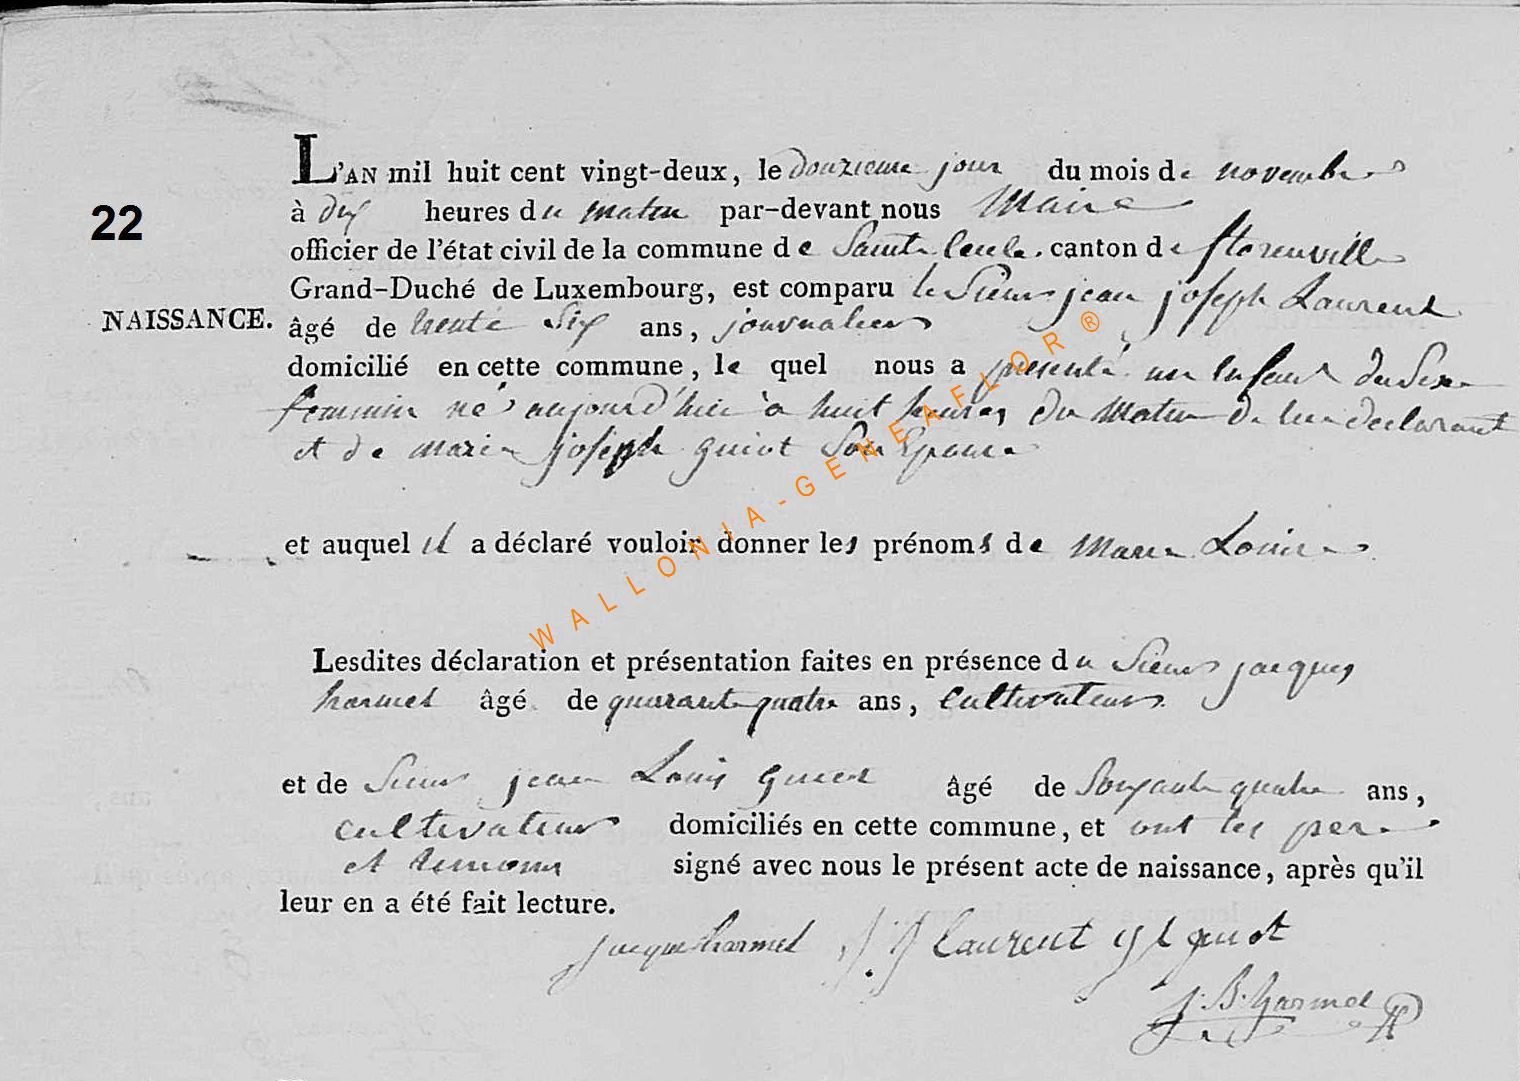 L'AN mil huit cent vingt-deux, le douzieme jour du mois de novembre
22
à dix heures du matin par-devant nous Maire
officier de l'état civil de la commune de Sainte Cecile. canton de florenville
Grand-Duché de Luxembourg, est comparu le Sieur jean joseph Laurent
NAISSANCE.
âgé de trente Six ans, journalier
domicilié en cette commune, le quel nous a presenté un Enfant du Sexe
feminin né aujourd'hui à huit heures du Matin de lui declarant
et de marie joseph guiot Son Epouse
et auquel il a déclaré vouloir donner les prénoms de Marie Louise
Lesdites déclaration et présentation faites en présence du Sieur jacques
harmel âgé de quarante quatre ans, Cultivateur
et de Sieur jean Louis Guiot âgé de Soixante quatre ans,
cultivateur domiciliés en cette commune, et ont les pere
et temoins signé avec nous le présent acte de naissance, après qu'il
leur en a été fait lecture.
jacque harmel J J Laurent J L guiot
J. B. harmel
WALLONIA-GENEAFLOR®